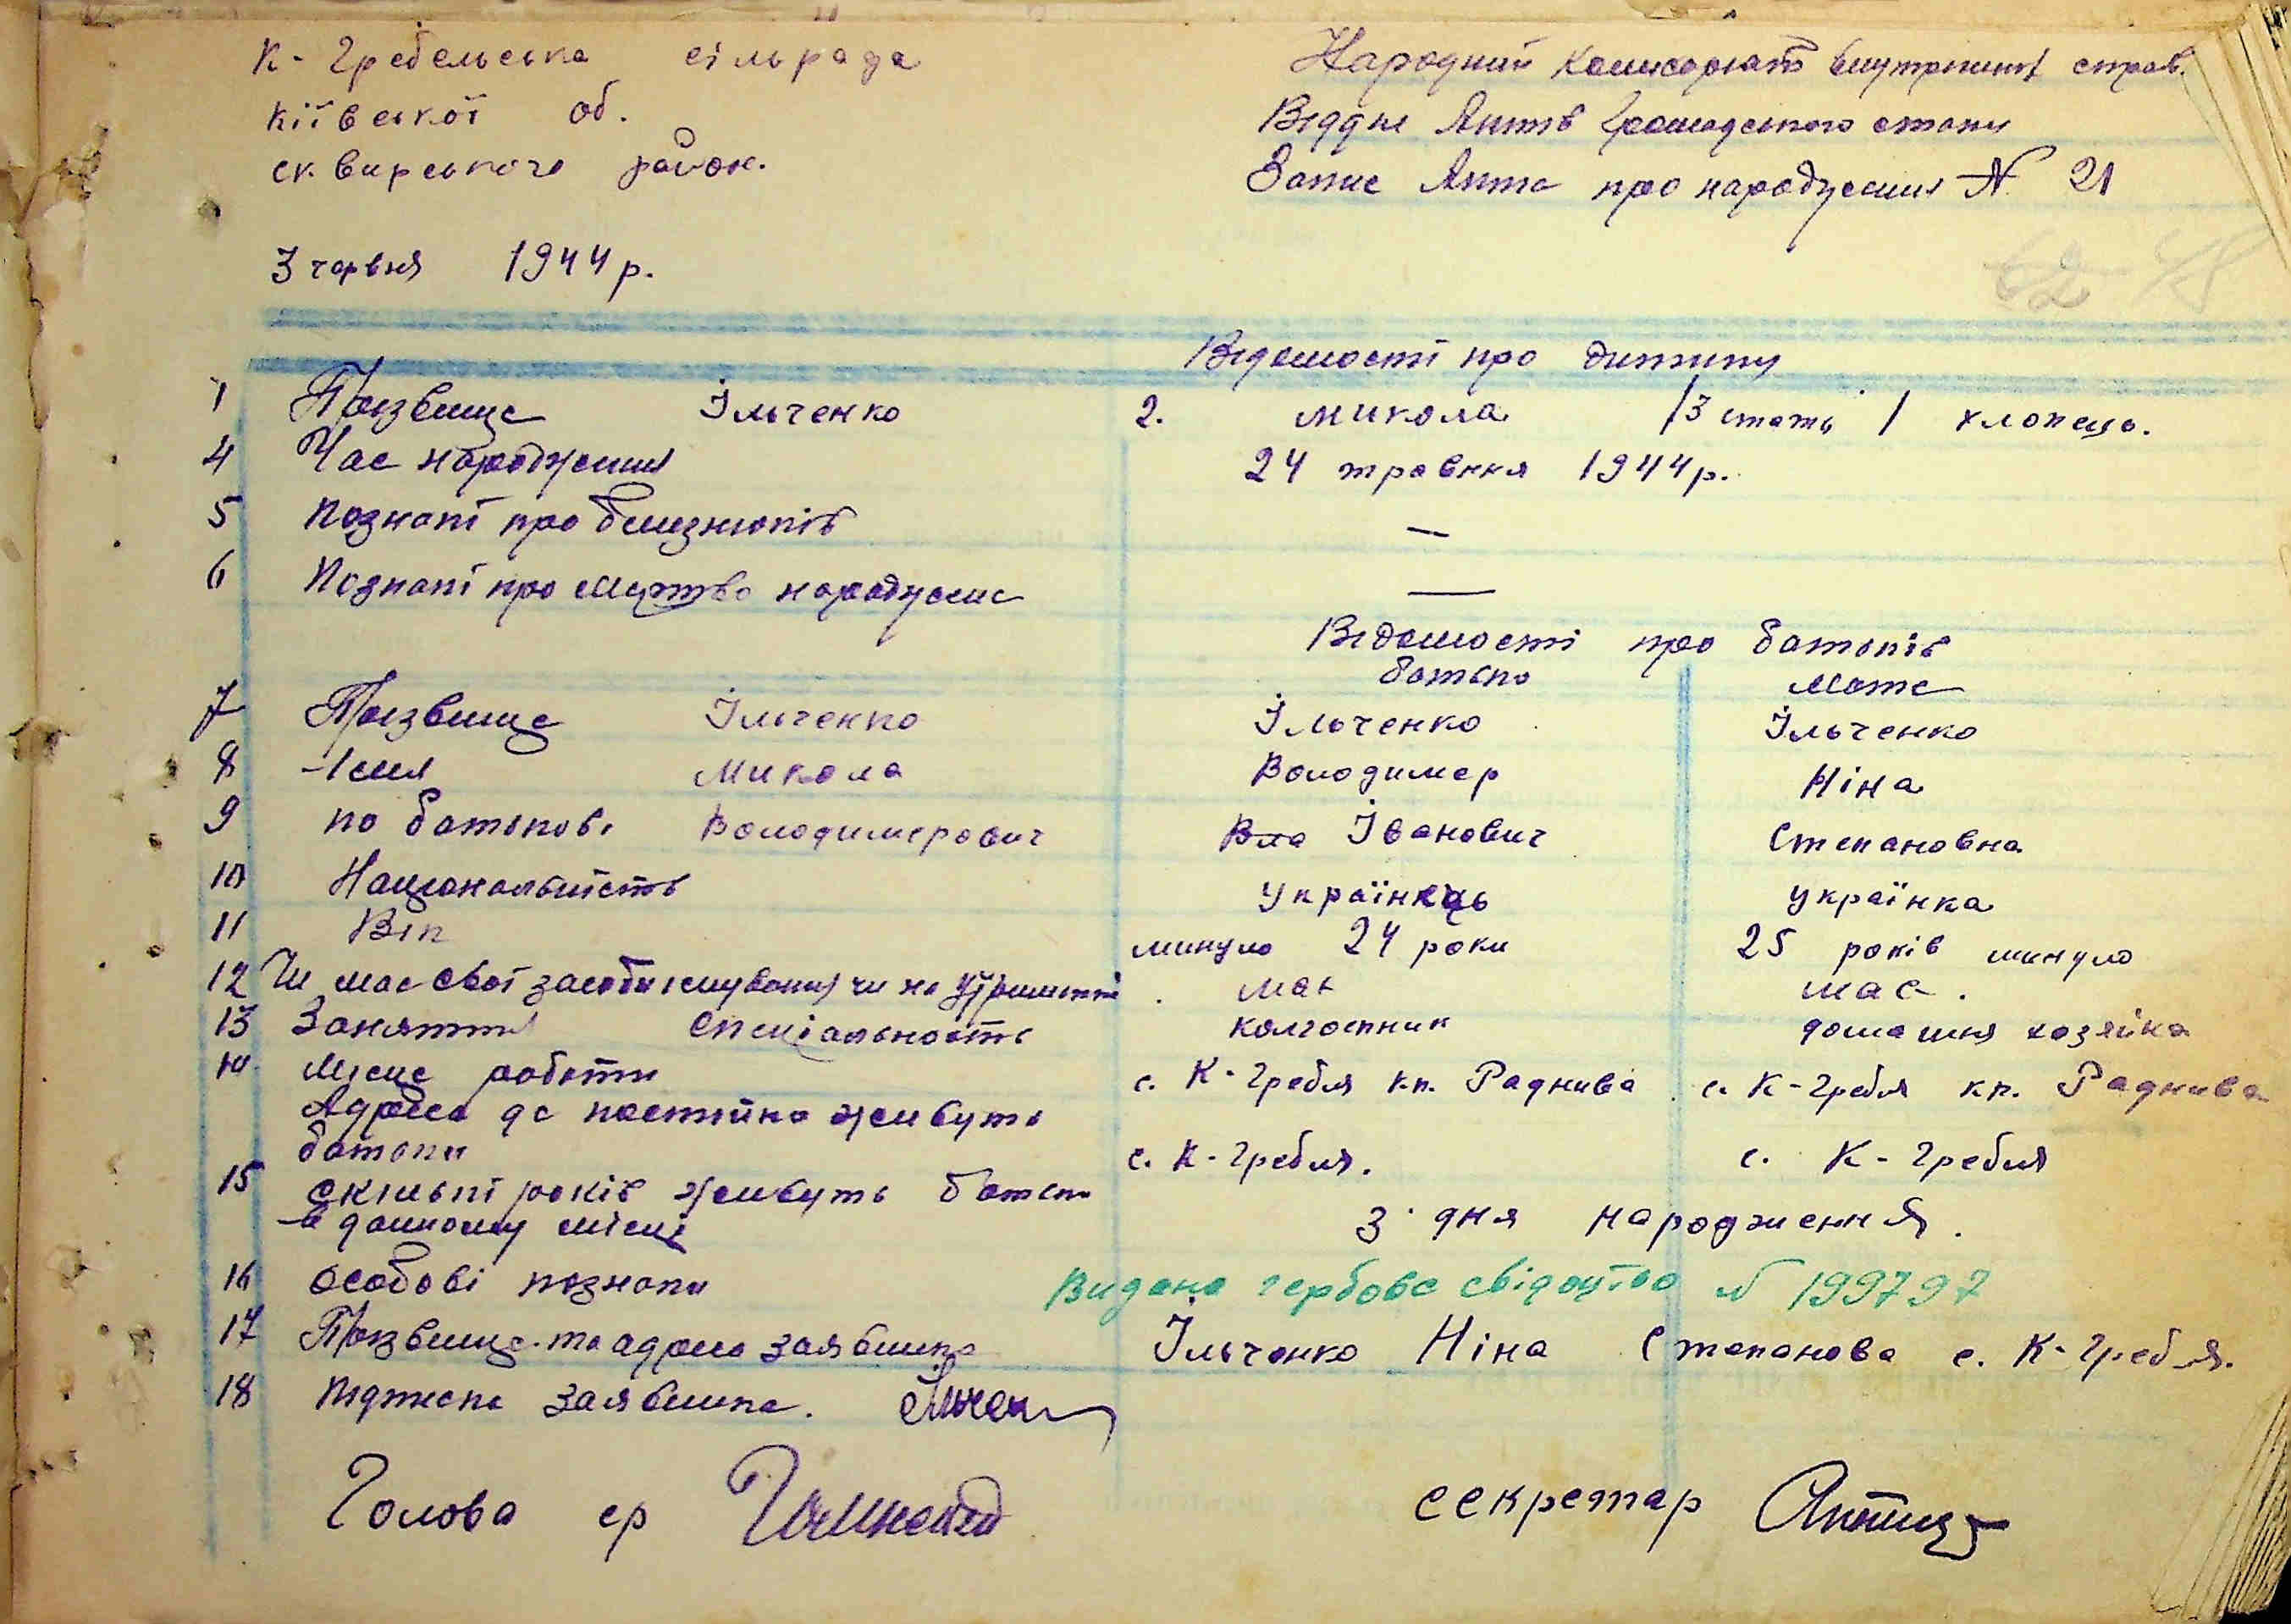 К-Гребельська сільрада
Київської об.
сквирського район.
3 червня 1944 р.
Народний комісаріат внутрішніх справ.
Відділ Актів Громадського стану
Запис Акта про народження N 21
Відомості про дитину
1 Прізвище Їльченко 2. микола /3 стать / хлопець.
4 Час народження 24 травння 1944 р.
5 Познакі про близнюків —
6 Познакі про Мертво народжене —
Відомості про батьків
батько мате
7 Прізвище Їльченко Їльченко Їльченко
8 Імя Микола Володимер Ніна
9 по батькові Володимерович Вла Їванович Степановна
10 Національність українець українка
11 Вік минуло 24 роки 25 років минуло
12 Чи має свої засоби існування чи на утриманні має має.
13 Заняття спеціальность колгоспник домашня хозяйка
14 Місце роботи с. К-Гребля кп. Раднива с. К-Гребля кп. Раднива
Адреса де постійно живуть
батьки с. К-Гребля. с. К-Гребля
15 скількі років живуть батьки
в данному місці з дня народження.
16 особові познаки Видано гербове свідоцтво N 199797
17 Прізвище та адреса заявника Їльченко Ніна Степанова с. К-Гребля.
18 Підписка заявника. Ільчен
Голова ср секретар